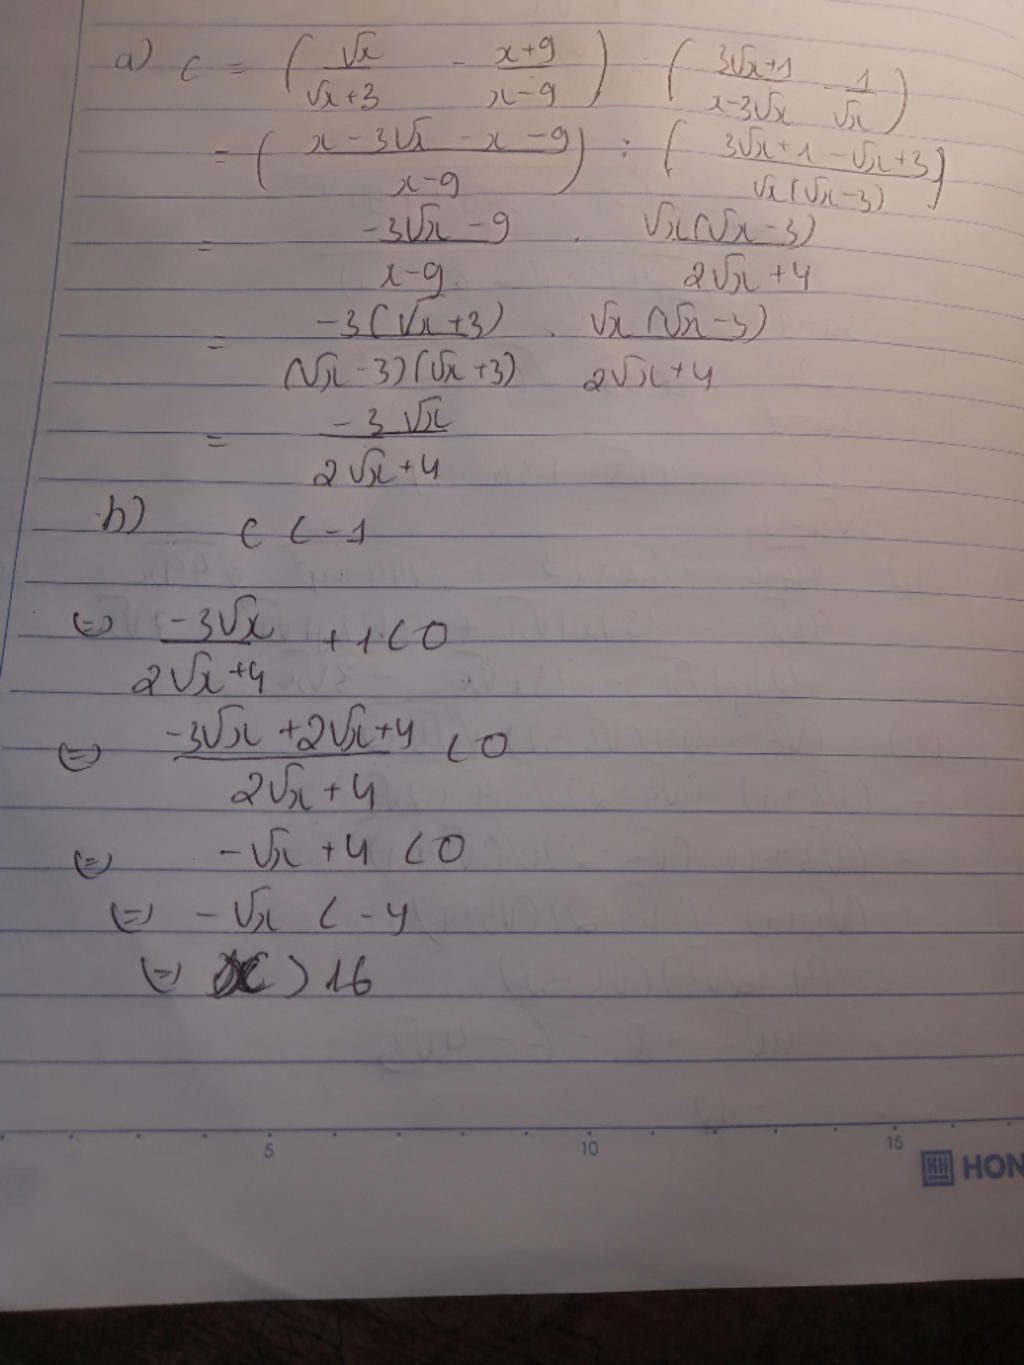 a) C = (√x/(√x+3) - (x+9)/(x-9)) · ((3√x+1)/(x-3√x) - 1/√x)
= ((x-3√x-x-9)/(x-9)) : ((3√x+1-√x+3)/(√x(√x-3)))
= (-3√x-9)/(x-9) · (√x(√x-3))/(2√x+4)
= (-3(√x+3))/((√x-3)(√x+3)) · (√x(√x-3))/(2√x+4)
= (-3√x)/(2√x+4)
b) C < -1
(=) (-3√x)/(2√x+4) + 1 < 0
(=) (-3√x+2√x+4)/(2√x+4) < 0
(=) -√x + 4 < 0
(=) -√x < -4
(=) x > 16
5 10 15
HON